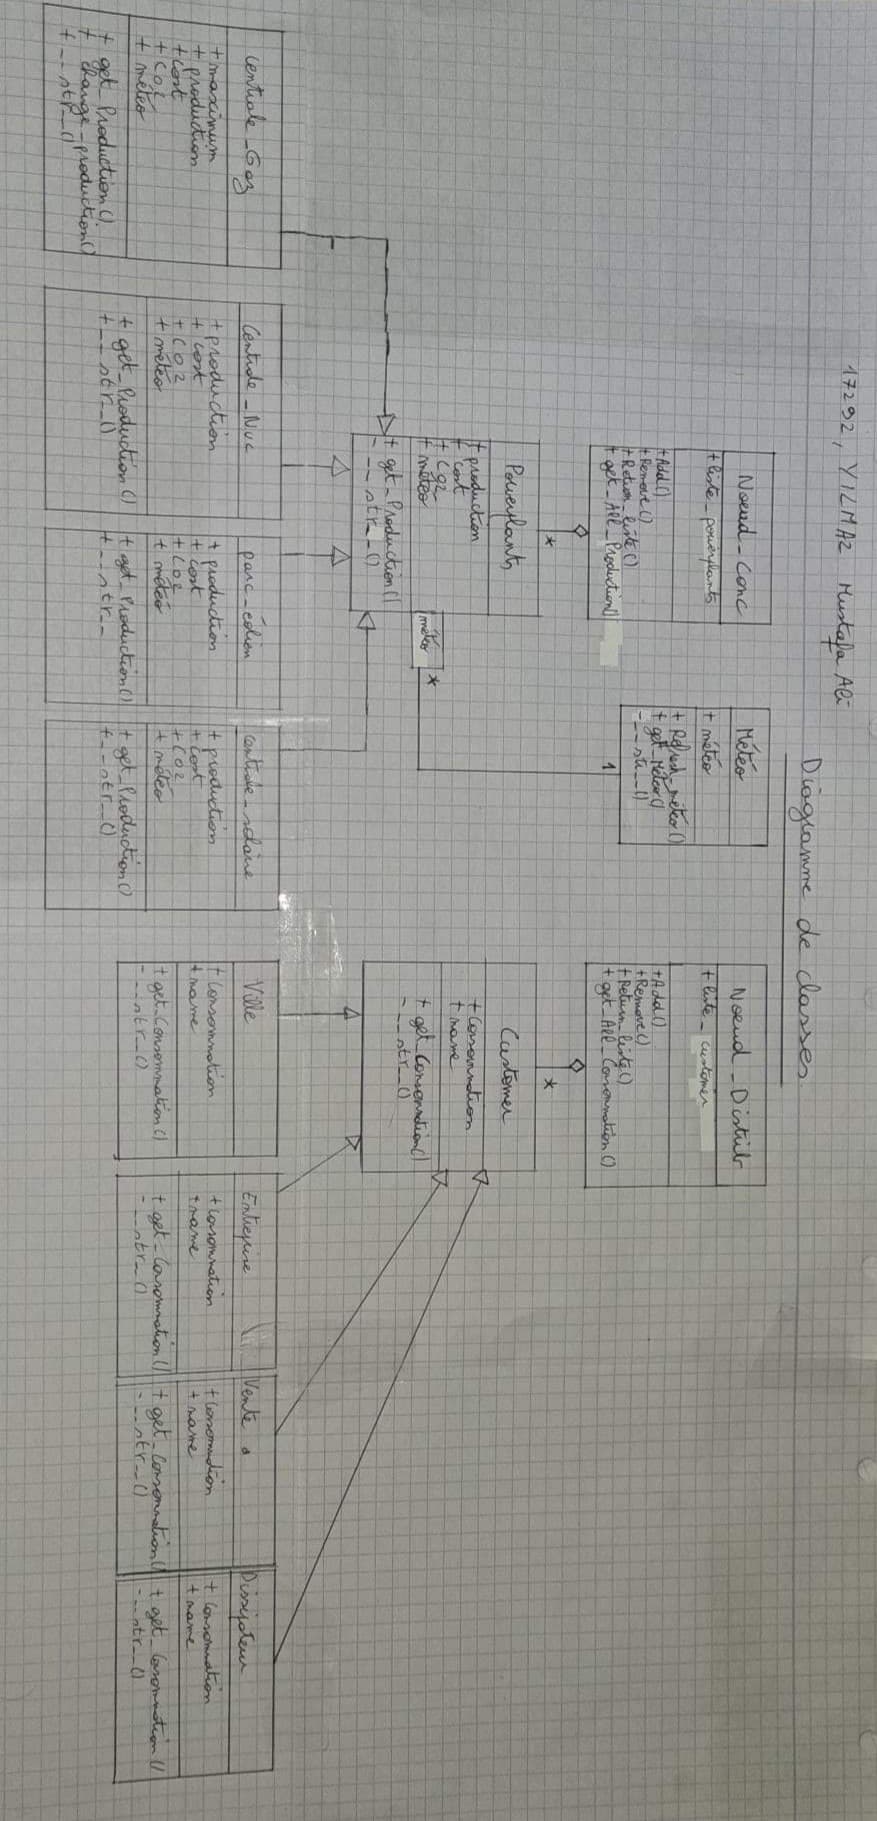 17292, YILMAZ Mustafa Ali
Diagramme de classes
Noeud_Conc
+ liste_powerplants
+ Add()
+ Remove()
+ Return_liste()
+ get_All_Production()
Météo
+ météo
+ Refresh_météo()
+ get_Météo()
- __str__()
Noeud_Distrib
+ liste_customer
+ Add()
+ Remove()
+ Return_liste()
+ get_All_Consommation()
*
1
*
Powerplants
+ production
+ cost
+ CO2
+ météo
+ get_Production()
- __str__()
météo
*
Customer
+ Consommation
+ name
+ get_Consommation()
- __str__()
Centrale_Gaz
+ maximum
+ production
+ cost
+ CO2
+ météo
+ get_Production()
+ change_production()
+ __str__()
Centrale_Nuc
+ production
+ cost
+ CO2
+ météo
+ get_Production()
+ __str__()
parc_éolien
+ production
+ cost
+ CO2
+ météo
+ get_Production()
+ __str__
centrale_solaire
+ production
+ cost
+ CO2
+ météo
+ get_Production()
+ __str__()
Ville
+ Consommation
+ name
+ get_Consommation()
- __str__()
Entreprise
+ Consommation
+ name
+ get_Consommation()
- __str__()
Vente
+ Consommation
+ name
+ get_Consommation()
- __str__()
Dissipateur
+ Consommation
+ name
+ get_Consommation()
- __str__()